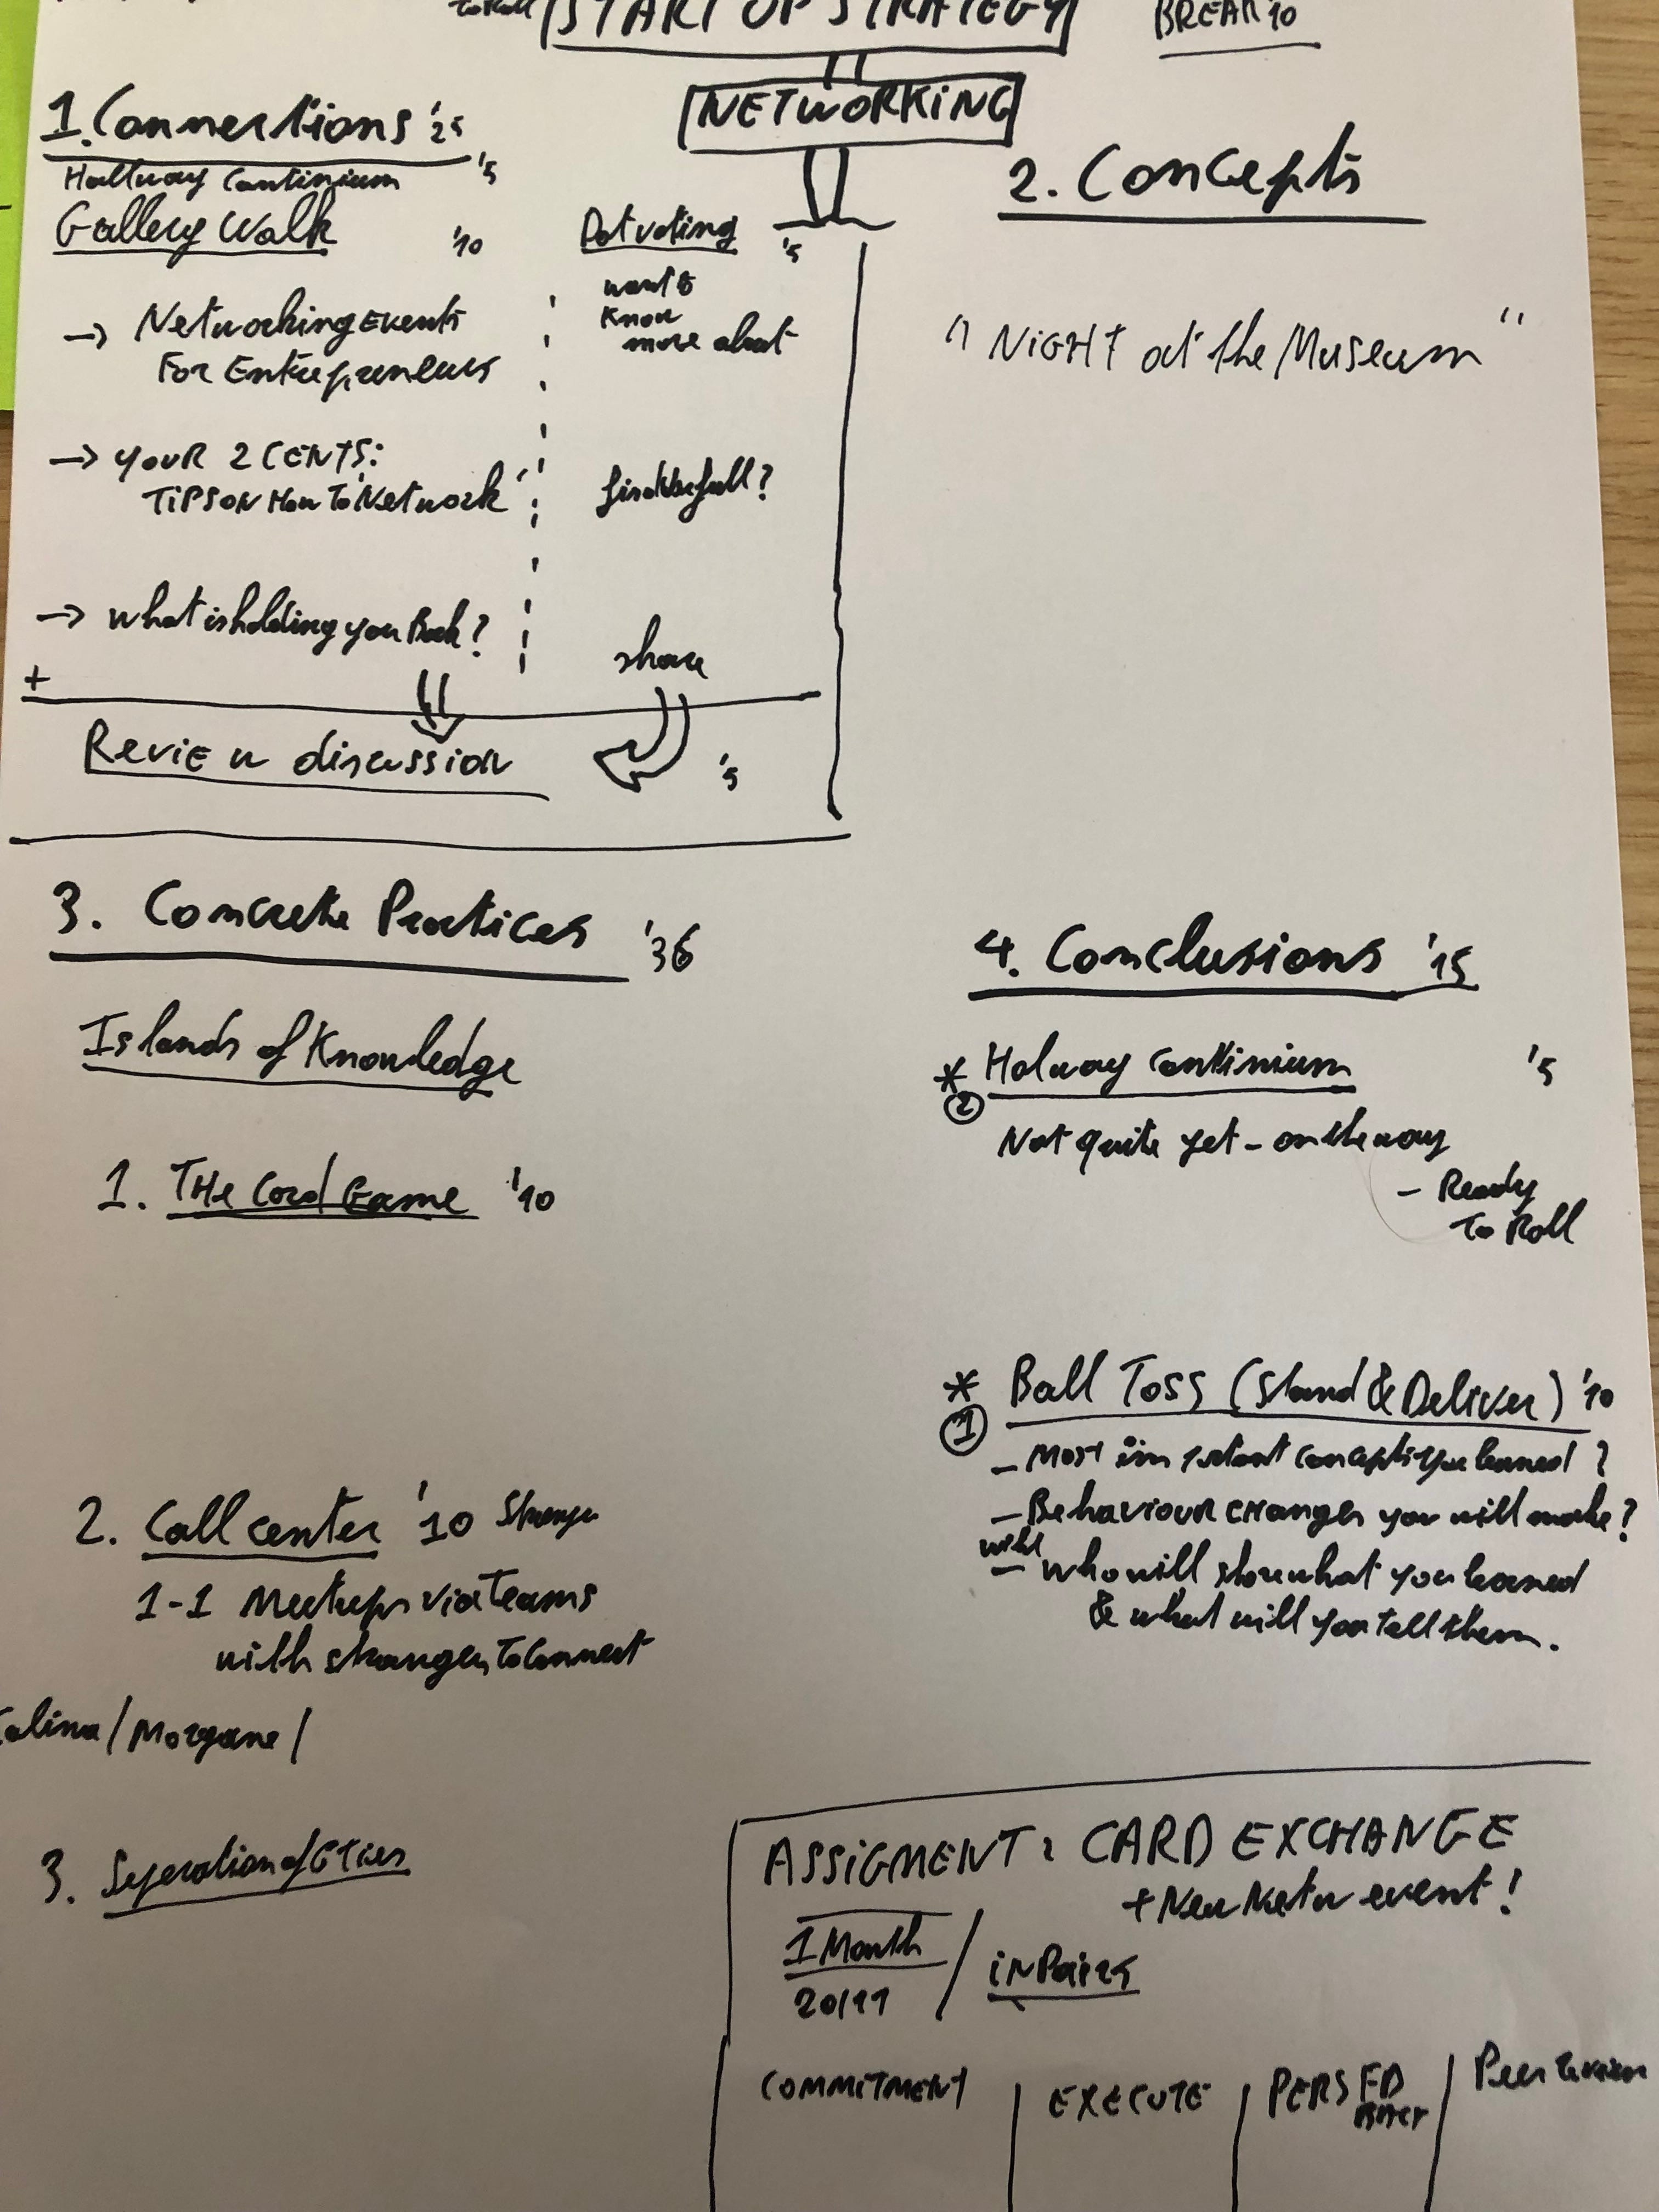 To Roll START UP STRATEGY BREAK '10
NETWORKING
1. Connections '25
Hallway Continium '5
Gallery Walk '10
Dotvoting '5
→ Networking Events
For Entrepreneurs
want to
know
more about
→ YOUR 2 CENTS:
TIPS ON How To Network
→ What is holding you Back?
share
+
Review discussion '5
2. Concepts
"NIGHT at the Museum"
3. Concrete Practices '36
Islands of Knowledge
1. THe Card Game '10
2. Call center '10
1-1 Meetups via Teams
with strangers To Connect
/ Morgane /
3. Seperation of
4. Conclusions '15
* Halway Continium '5
2
Not quite yet - on the way
- Ready
To Roll
* Ball Toss (Stand & Deliver) '10
1
- Most important concepts you learned?
- Behaviour changes you will make?
- who will share what you learned
& what will you tell them.
ASSIGMENT: CARD EXCHANGE
+ New Netw event!
1 Month / in Pairs
20/11
COMMITMENT | EXECUTE | PERS FD | Peer Review